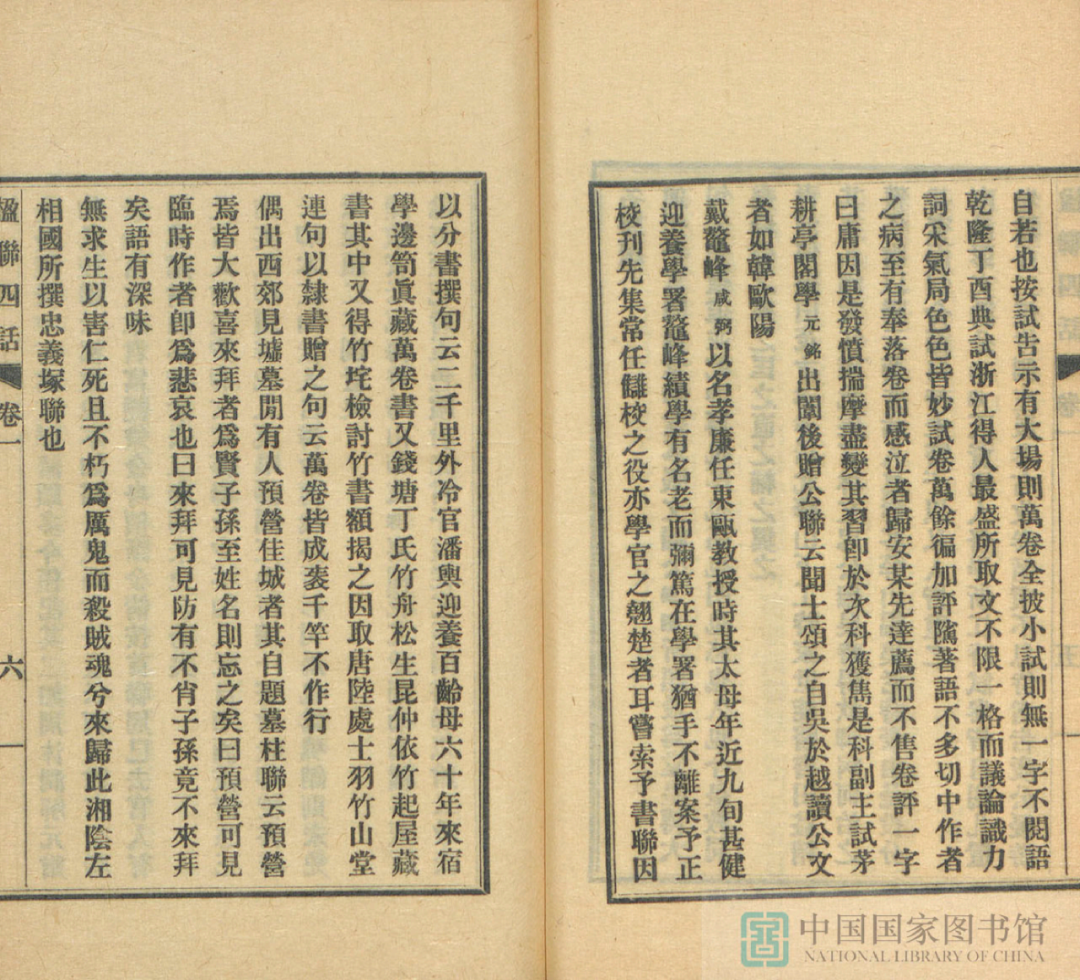 自若也按試告示有大場則萬卷全披小試則無一字不閱語
乾隆丁酉典試浙江得人最盛所取文不限一格而議論識力
詞宋氣局色色皆妙試卷萬餘徧加評隲著語不多切中作者
之病至有奉落卷而感泣者歸安某先達薦而不售卷評一字
曰庸因是發憤揣摩盡變其習卽於次科獲雋是科副主試茅
耕亭閣學元銘出闈後贈公聯云聞士頌之自吳於越讀公文
者如韓歐陽
戴鼇峰咸弼以名孝廉任東甌教授時其太母年近九旬甚健
迎養學署鼇峰績學有名老而彌篤在學署猶手不離案予正
校刊先集常任讎校之役亦學官之翹楚者耳嘗索予書聯因
以分書撰句云二千里外冷官潘輿迎養百齡母六十年來宿
學邊笥眞藏萬卷書又錢塘丁氏竹舟松生昆仲依竹起屋藏
書其中又得竹垞檢討竹書額揭之因取唐陸處士羽竹山堂
連句以隸書贈之句云萬卷皆成袠千竿不作行
偶出西郊見墟墓閒有人預營佳城者其自題墓柱聯云預營
焉皆大歡喜來拜者爲賢子孫至姓名則忘之矣曰預營可見
臨時作者卽爲悲哀也曰來拜可見防有不肖子孫竟不來拜
矣語有深味
無求生以害仁死且不朽爲厲鬼而殺賊魂兮來歸此湘陰左
相國所撰忠義塚聯也
楹聯四話 卷一 六
中国国家图书馆
NATIONAL LIBRARY OF CHINA